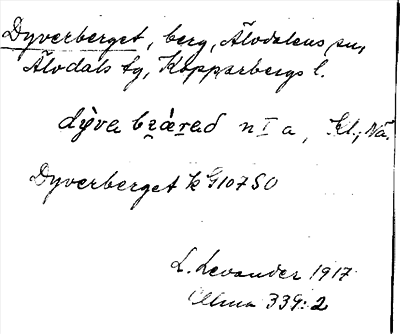 Dyverberget, berg, Älvdalens sn,
Älvdals tg, Kopparbergs l.
dỳva bᴢ̨ærəd n I a, Kl.; Nä.
Dyverberget k G 107 SO
L. Levander 1917
Ulma 339:2